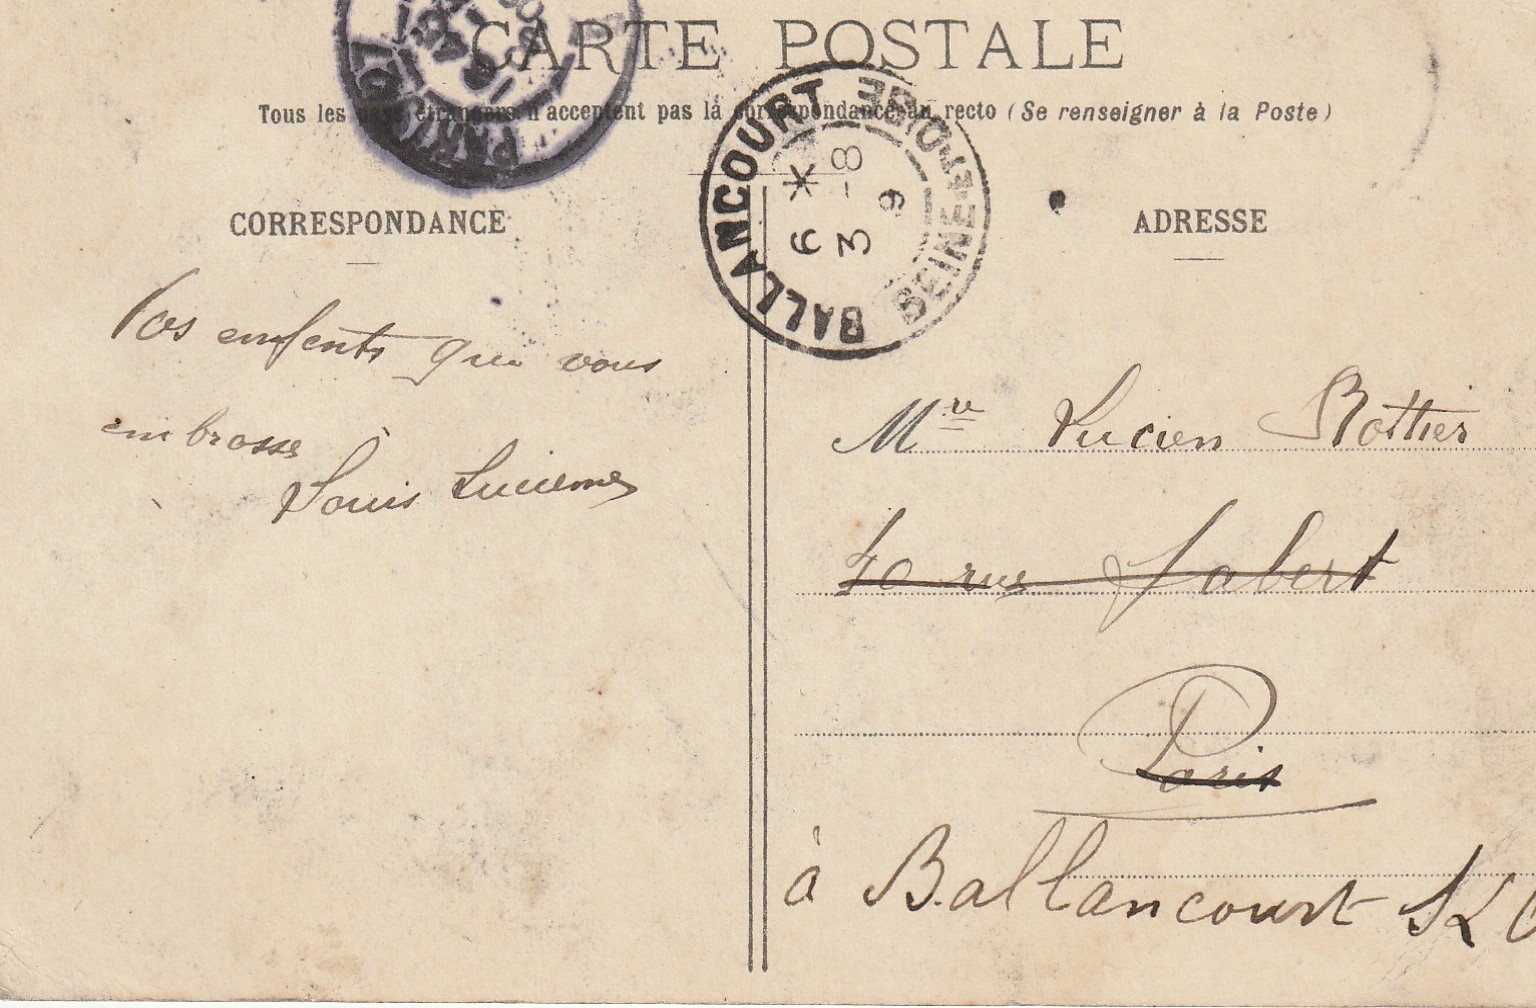 CARTE POSTALE
Tous les pays étrangers n'acceptent pas la correspondance au recto (Se renseigner à la Poste)
BALLANCOURT
SEINE-ET-OISE
6 * 
3 -8
9
PARIS
CORRESPONDANCE
Vos enfents qui vous
embrosse
Louis Lucienne
ADRESSE
Mme Lucien Rottier
40 rue Jabert
Paris
à Ballancourt